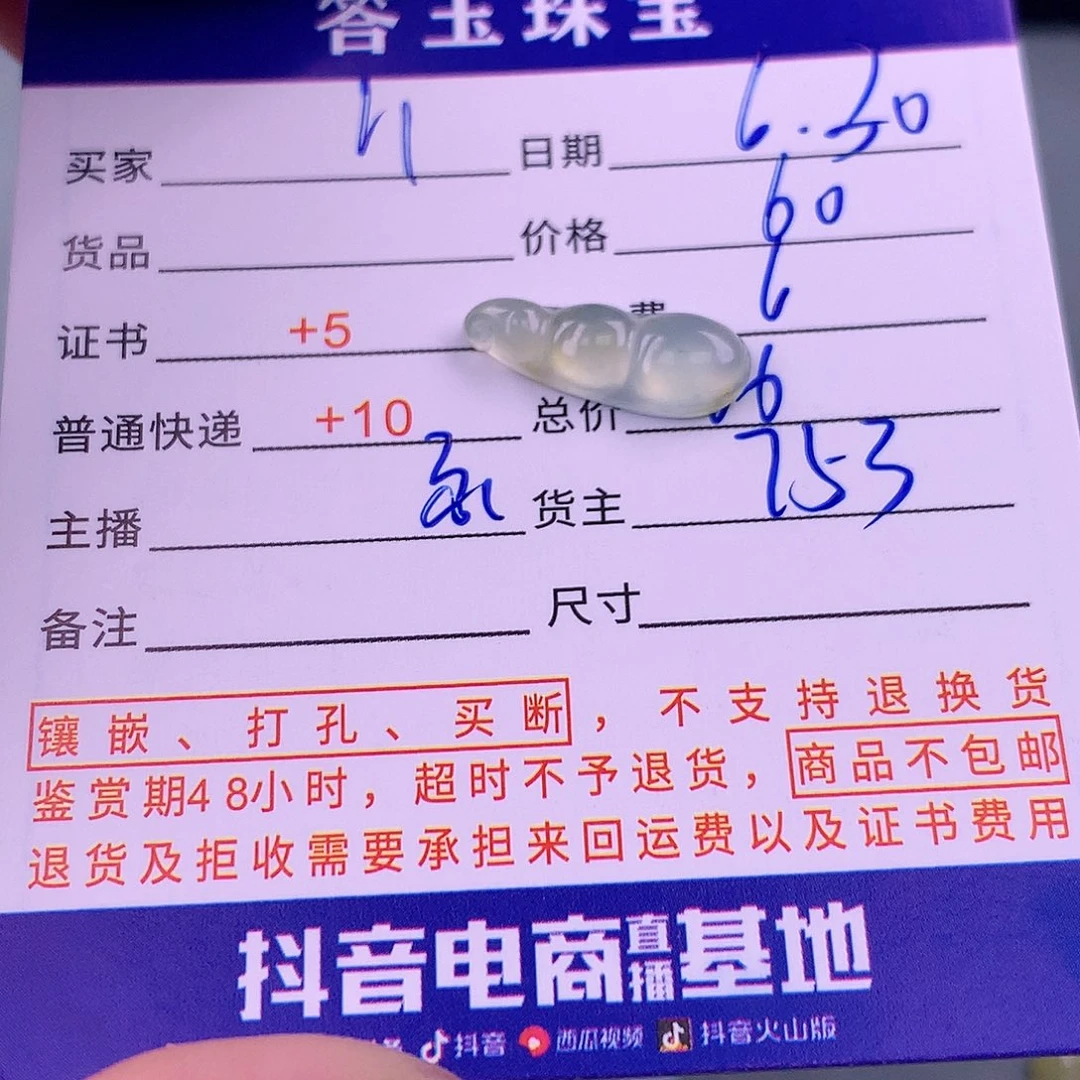 答玉珠宝
买家 日期 6.30
货品 价格 60
证书 +5 费 6
普通快递 +10 总价
主播 货主 753
备注 尺寸
镶嵌、打孔、买断，不支持退换货
鉴赏期48小时，超时不予退货，商品不包邮
退货及拒收需要承担来回运费以及证书费用
抖音电商直播基地
抖音 西瓜视频 抖音火山版